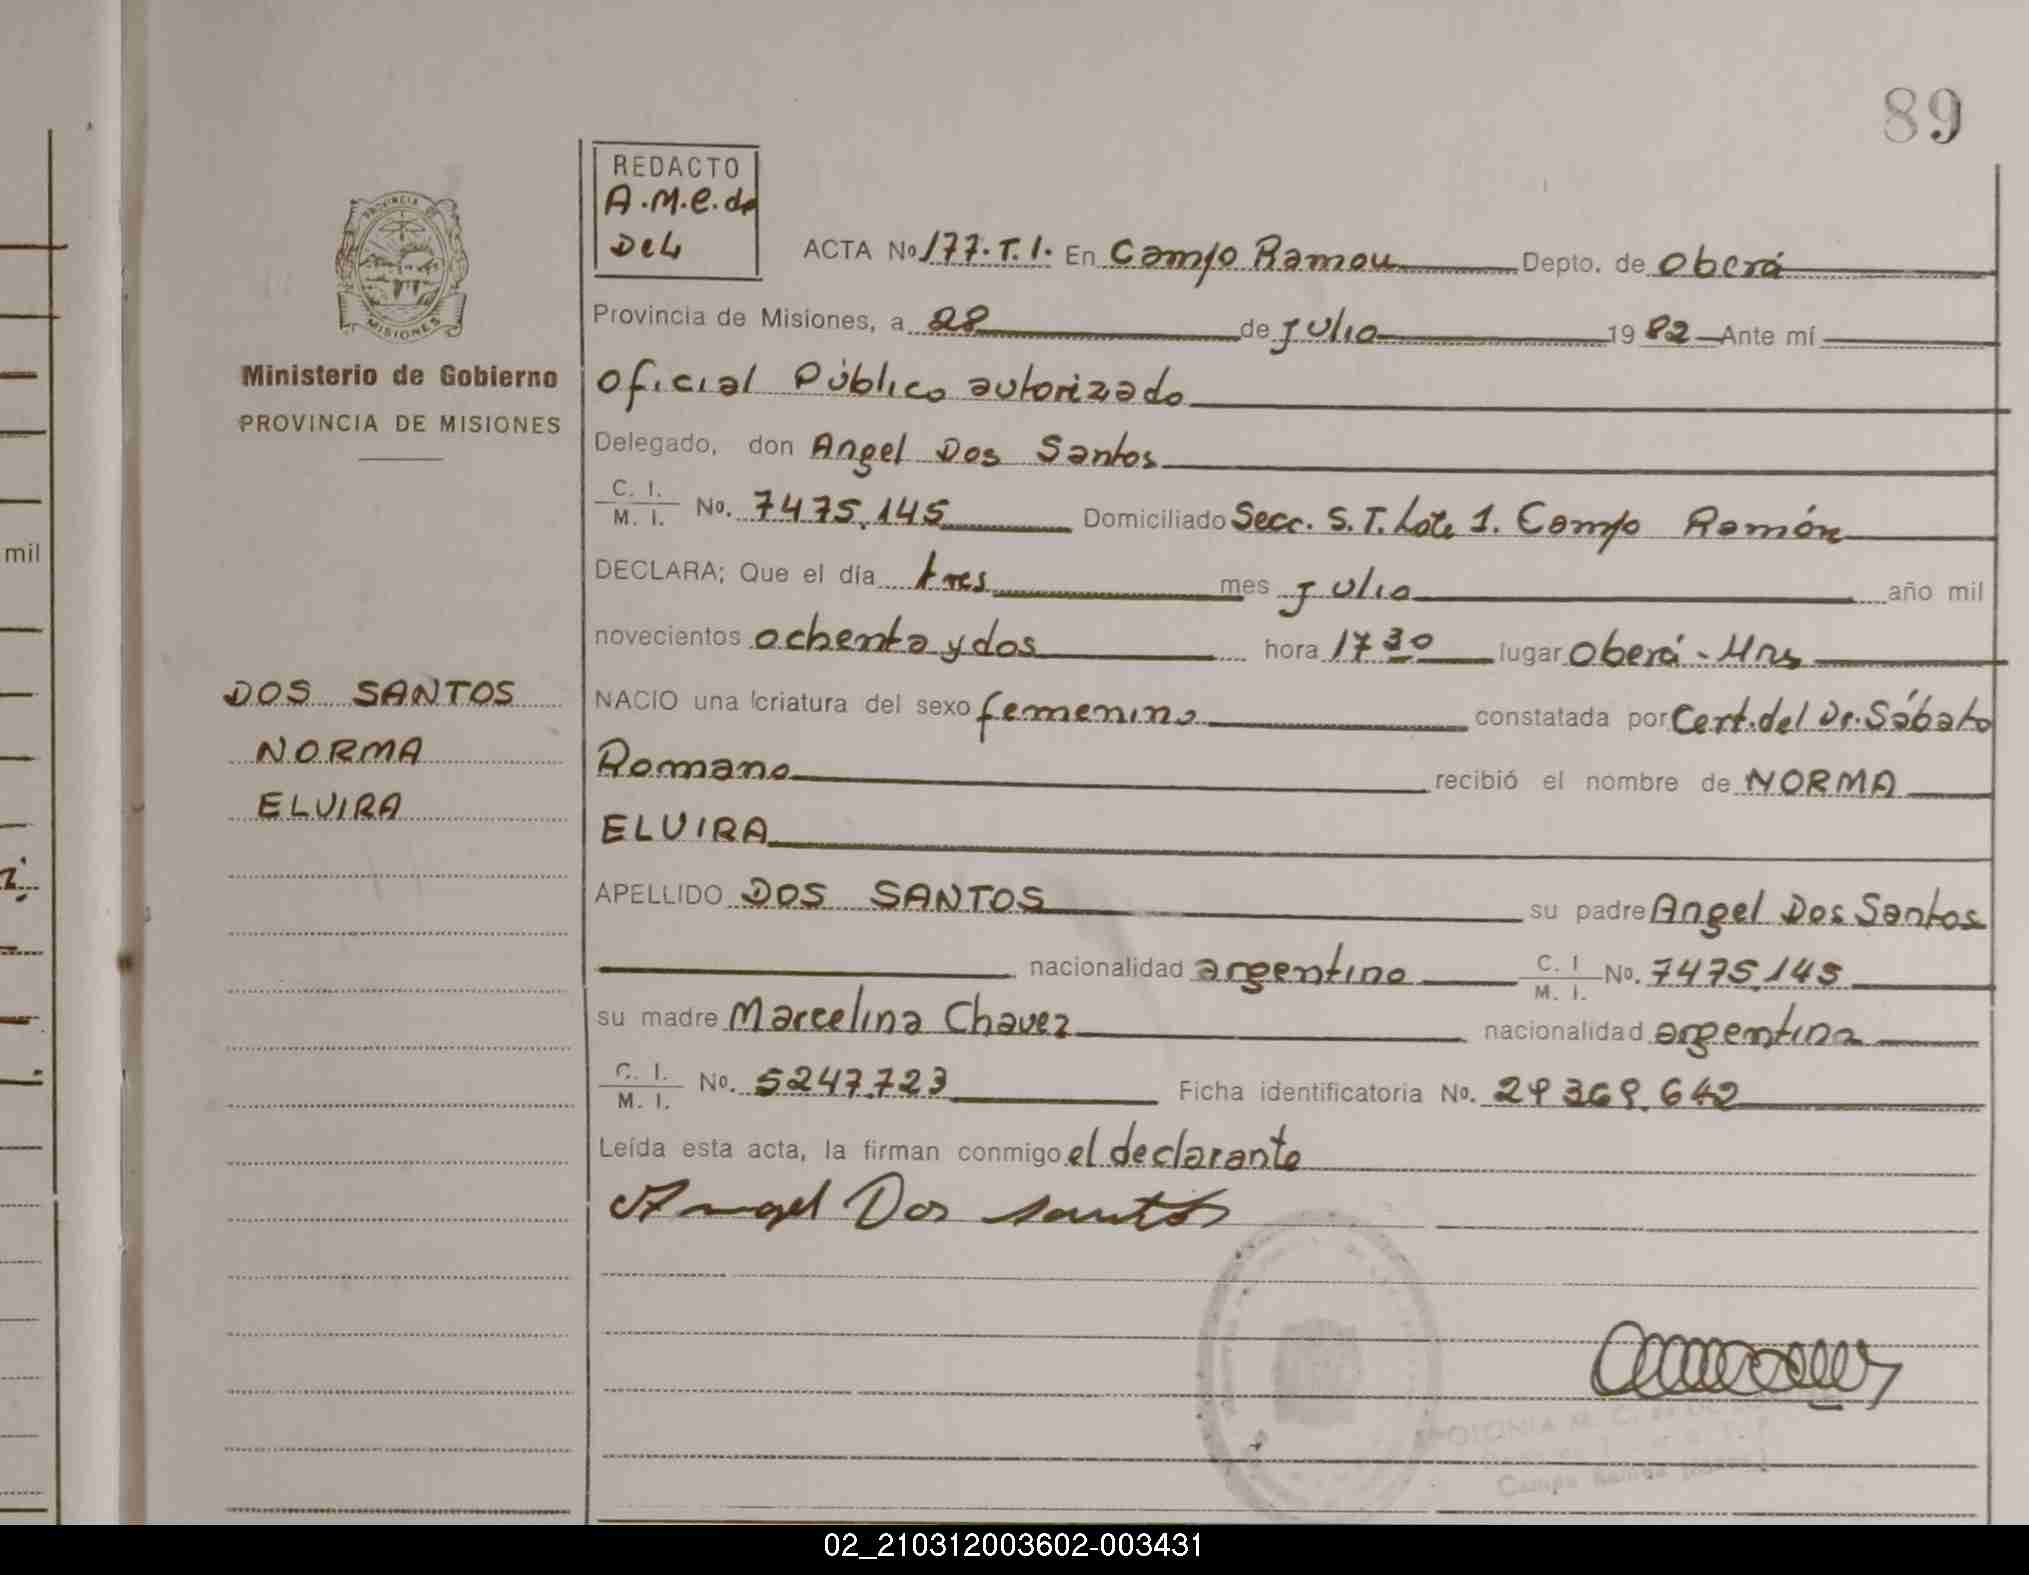 89
REDACTO
A.M.C. de
Del
ACTA No 177.T.1. En Campo Ramon Depto. de Oberá
Provincia de Misiones, a 28 de julio 1982 Ante mí
PROVINCIA DE
MISIONES
Ministerio de Gobierno
PROVINCIA DE MISIONES
oficial Público autorizado
Delegado, don Angel Dos Santos
C. I. / M. I. No. 7475.145 Domiciliado Secc. S.T. Lote 1. Campo Ramón
mil
DECLARA; Que el día tres mes julio año mil
novecientos ochenta y dos hora 17 30 lugar Oberá - Mns
DOS SANTOS
NORMA
ELVIRA
NACIO una criatura del sexo femenino constatada por Cert. del Dr. Sábato
Romano recibió el nombre de NORMA
ELVIRA
APELLIDO DOS SANTOS su padre Angel Dos Santos
nacionalidad argentino C. I / M. I. No. 7475.145
su madre Marcelina Chavez nacionalidad argentina
C. I. / M. I. No. 5247.723 Ficha identificatoria No. 29 369.642
Leída esta acta, la firman conmigo el declarante
Angel Dos santos
Campo Ramón
02_210312003602-003431